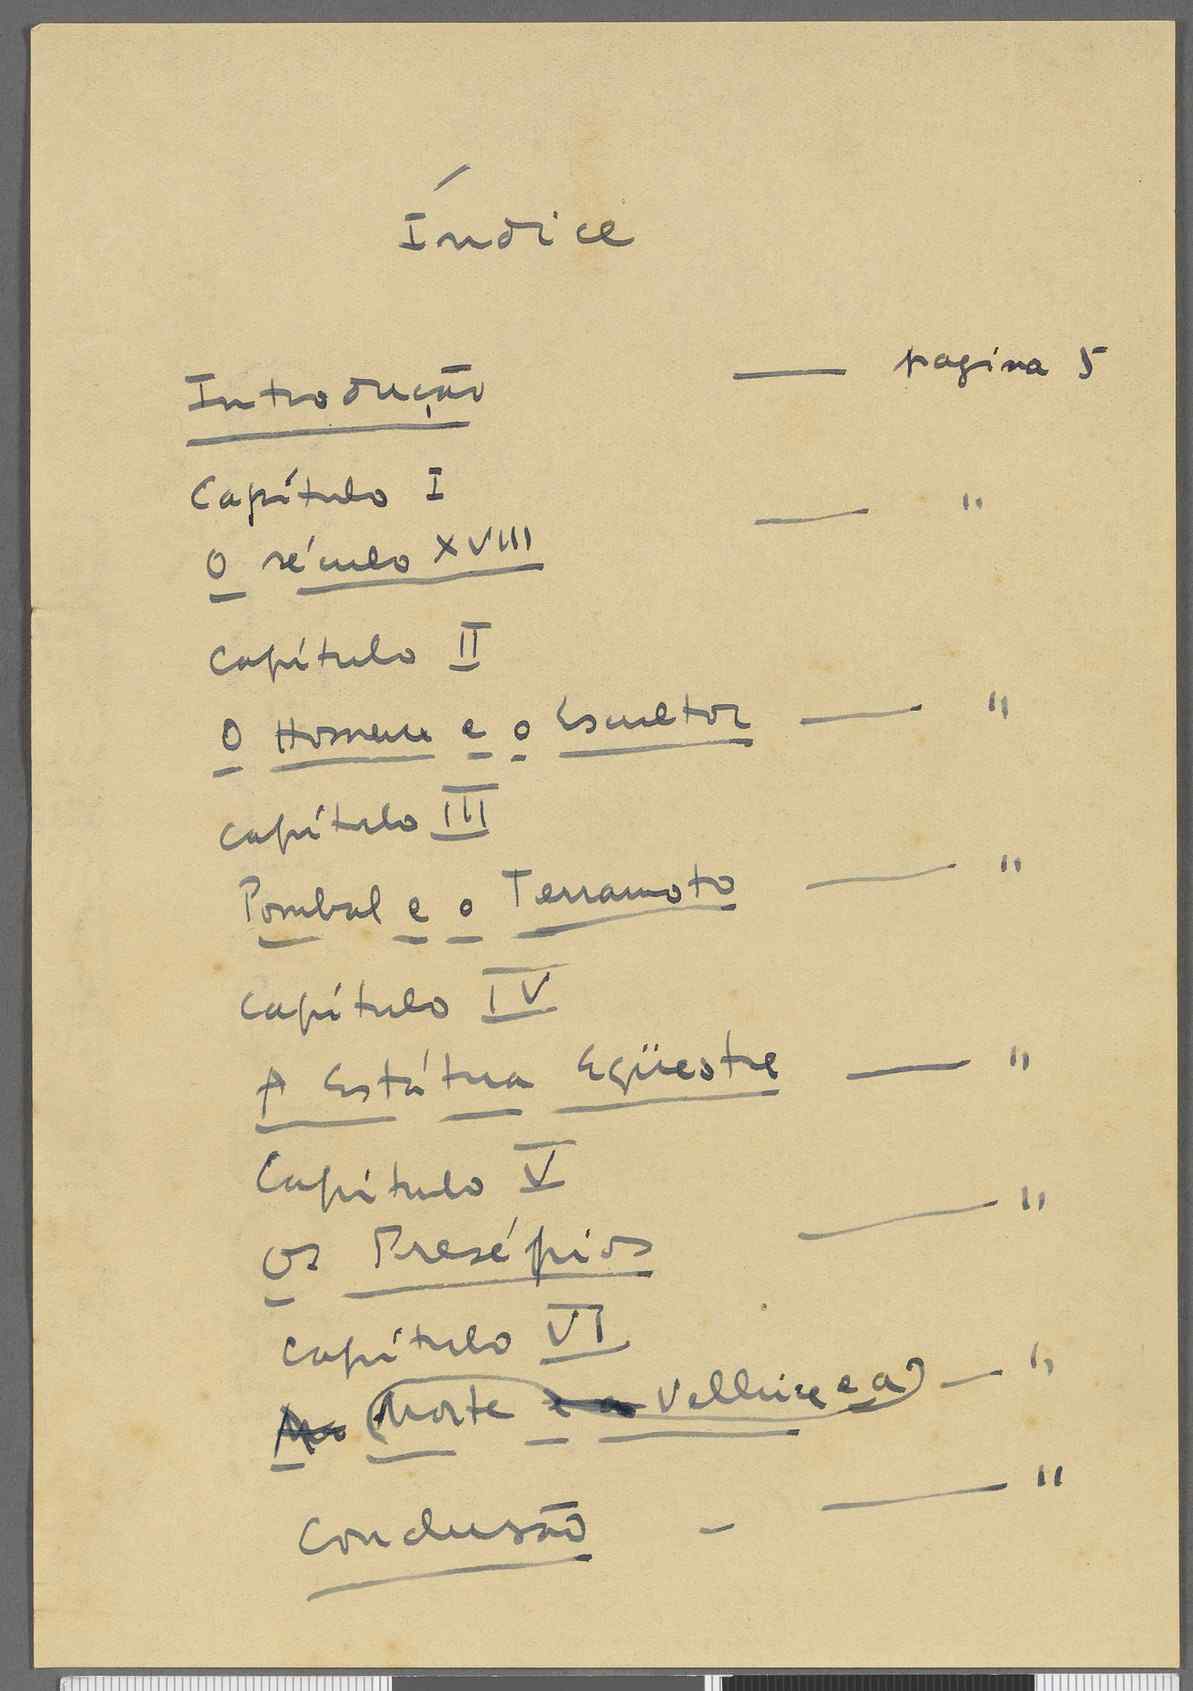 Índice
Introdução — pagina 5
Capítulo I
O século XVIII — "
Capítulo II
O Homem e o Escultor — "
Capítulo III
Pombal e o Terramoto — "
Capítulo IV
A Estátua Eqüestre — "
Capítulo V
Os Presépios — "
Capítulo VI
Morte e a Velhice e a — "
Conclusão - — "